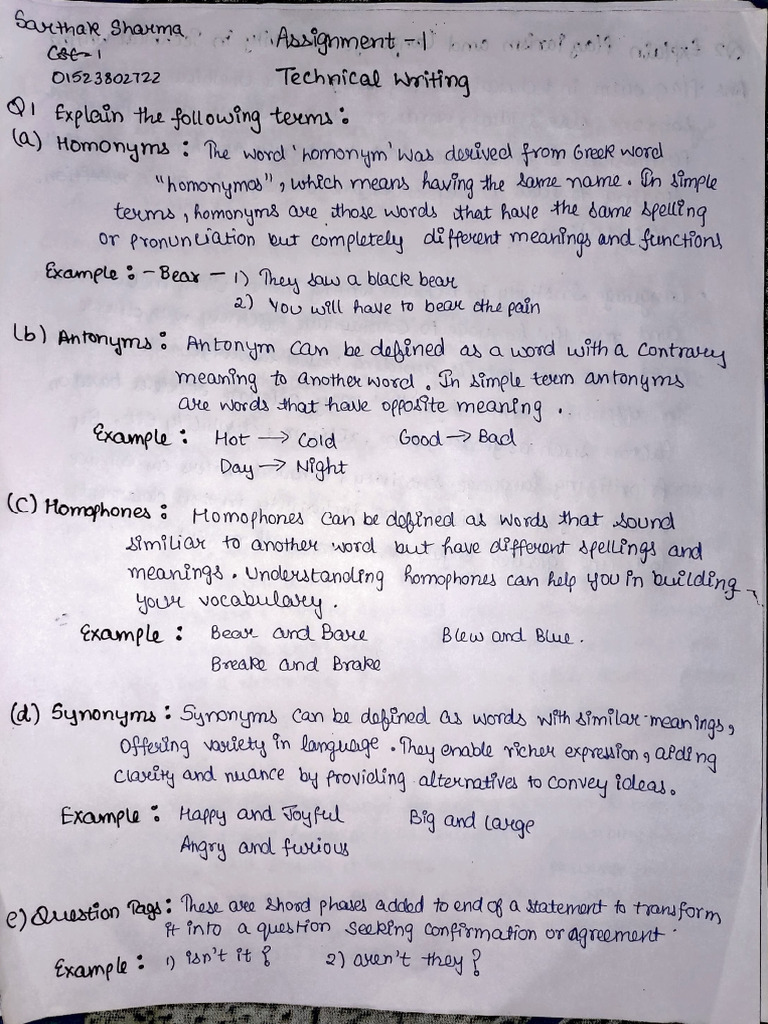 Sarthak Sharma
CSE-1
01523802722
Assignment-1
Technical Writing
Q1 Explain the following terms:
(a) Homonyms: The word 'homonym' was derived from Greek word
"homonymos", which means having the same name. In simple
terms, homonyms are those words that have the same spelling
or pronunciation but completely different meanings and functions
Example: - Bear - 1) They saw a black bear
2) You will have to bear the pain
(b) Antonyms: Antonym can be defined as a word with a contrary
meaning to another word. In simple term antonyms
are words that have opposite meaning.
Example: Hot → Cold Good → Bad
Day → Night
(C) Homophones: Homophones can be defined as words that sound
similiar to another word but have different spellings and
meanings. Understanding homophones can help you in building
your vocabulary.
Example: Bear and Bare Blew and Blue.
Breake and Brake
(d) Synonyms: Synonyms can be defined as words with similar meanings,
offering variety in language. They enable richer expression, aiding
clarity and nuance by providing alternatives to convey ideas.
Example: Happy and Joyful Big and Large
Angry and furious
e) Question Tags: These are shord phases added to end of a statement to transform
it into a question seeking confirmation or agreement.
Example: 1) isn't it? 2) aren't they?